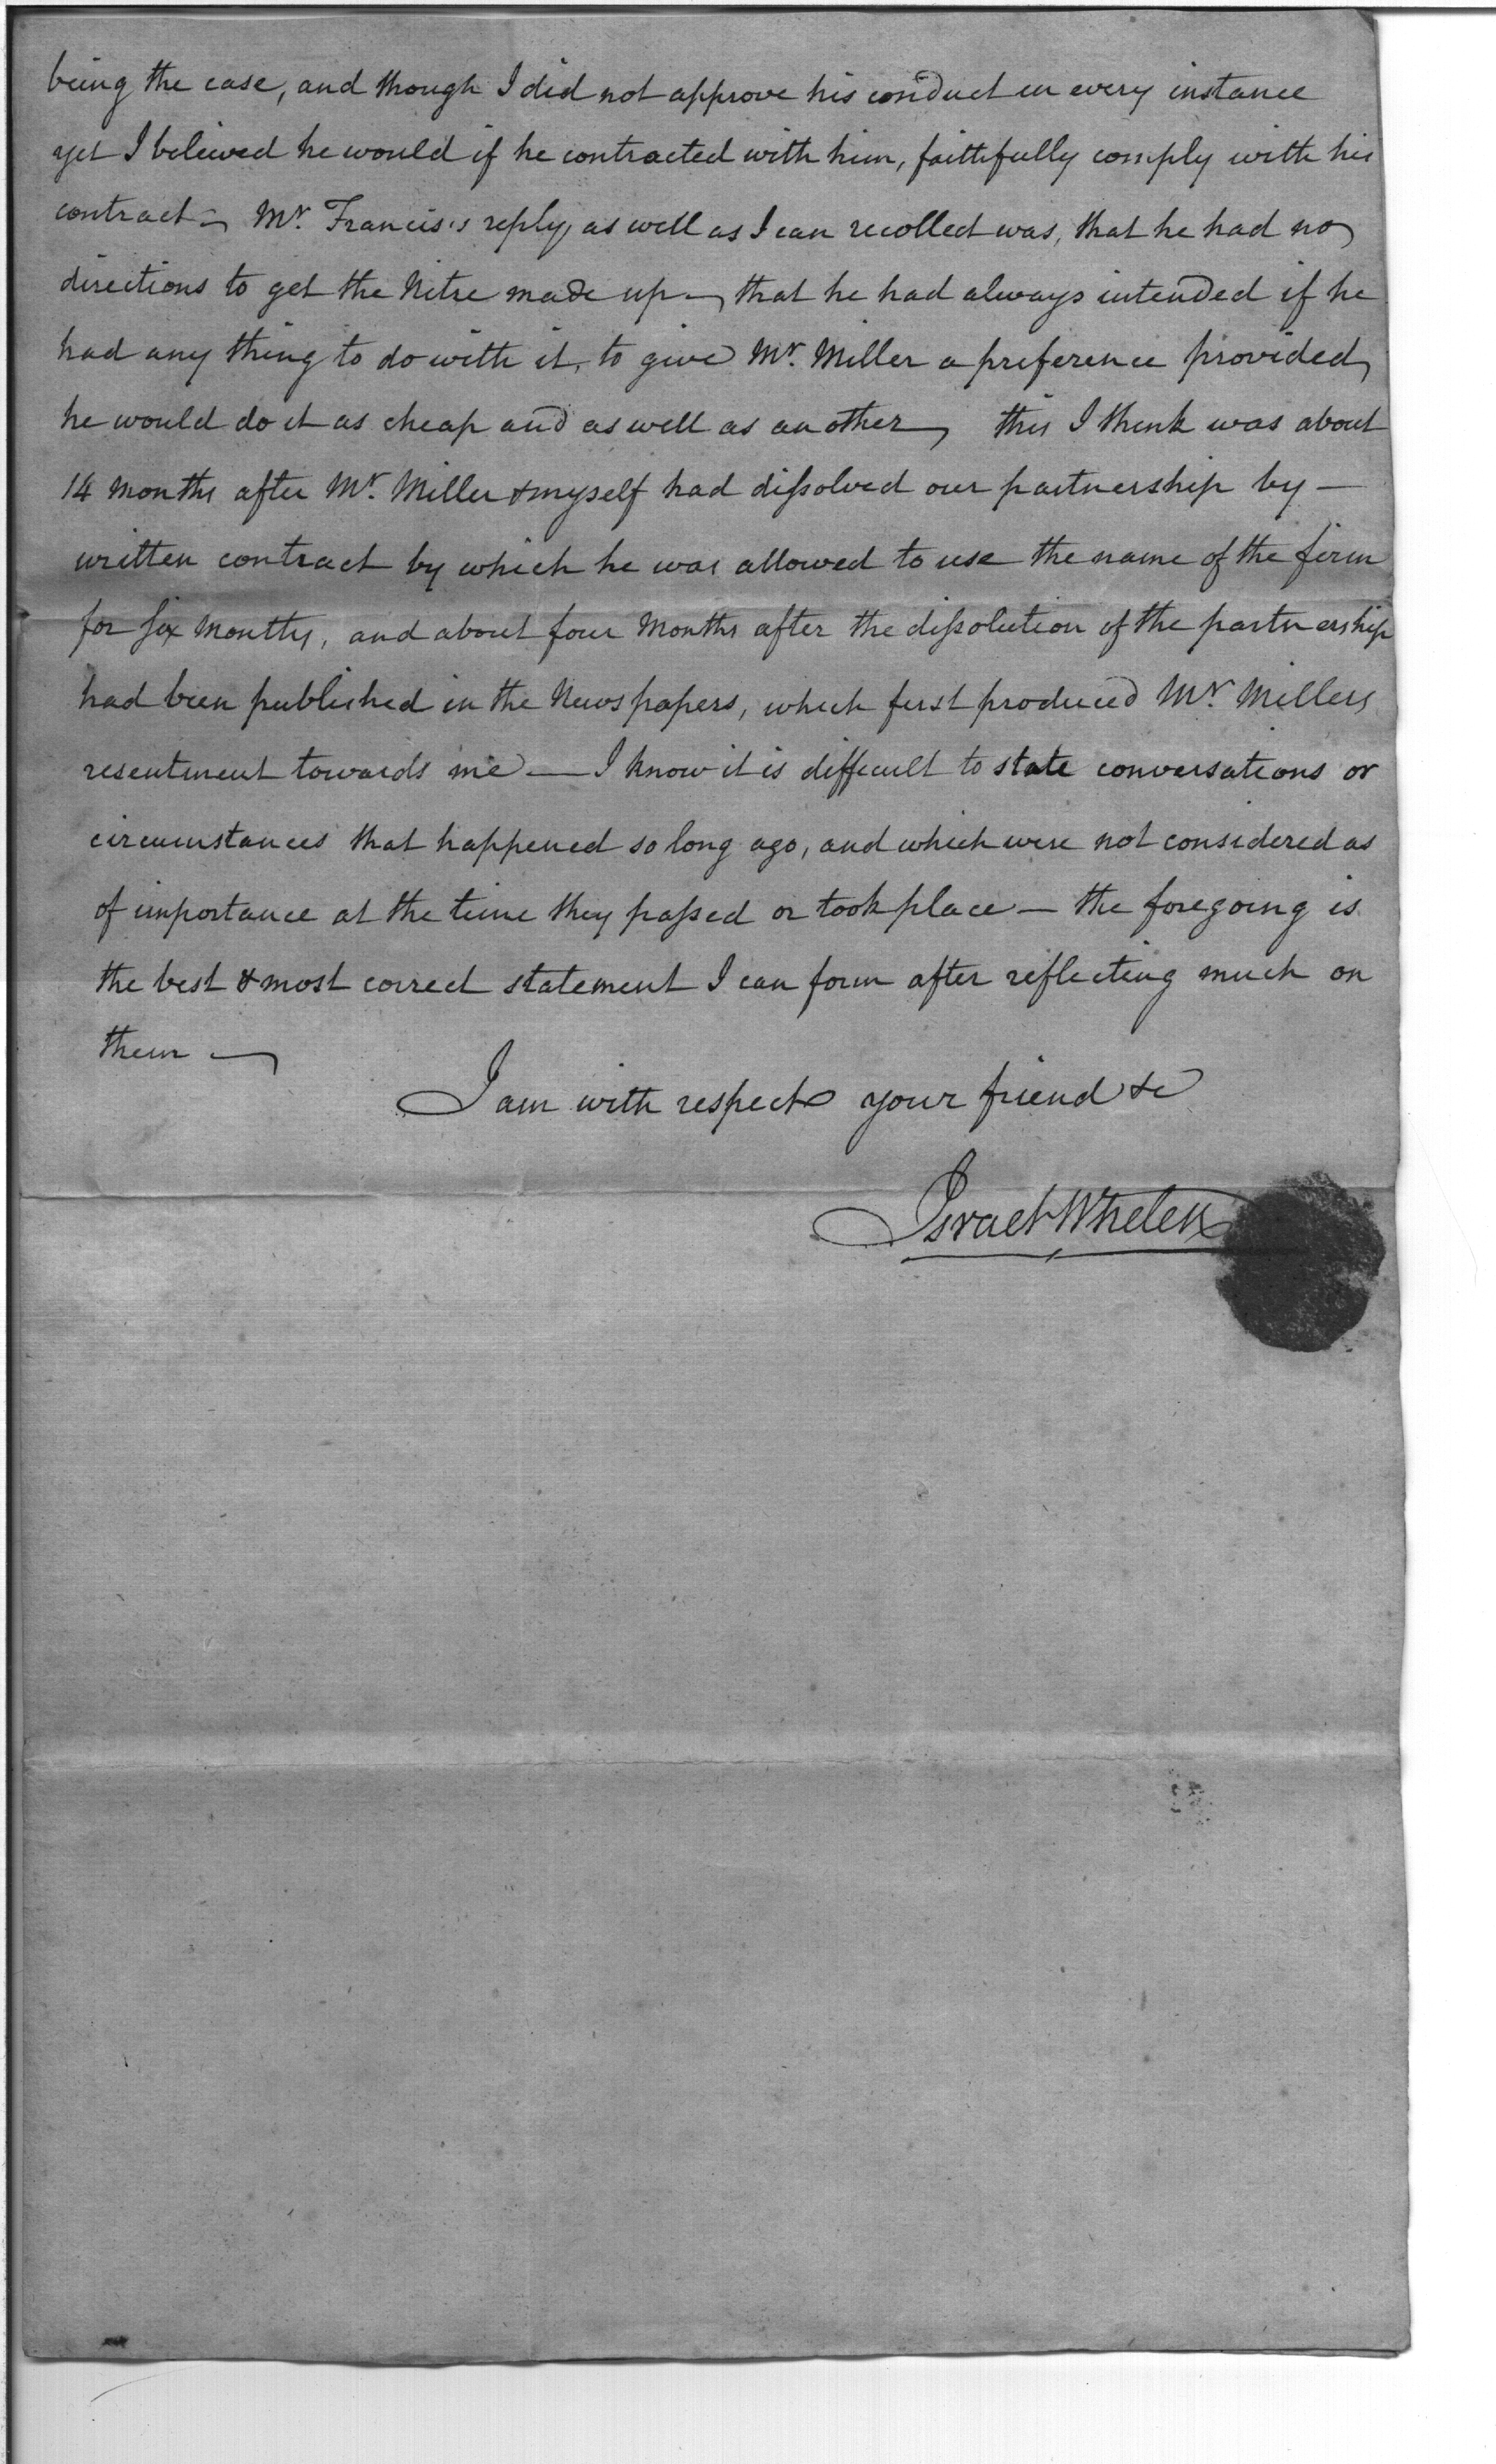 being the case, and though I did not approve his conduct in every instance
yet I beleived he would if he contracted with him, faithfully comply with his
contract – Mr. Francis's reply, as well as I can recollect was, that he had no
directions to get the Nitre made up – that he had always intended if he
had any thing to do with it, to give Mr. Miller a preference provided
he would do it as cheap and as well as another, this I think was about
14 Months after Mr. Miller & myself had dissolved our partnership by –
written contract by which he was allowed to use the name of the firm
for six Months, and about four Months after the dissolution of the partnership
had been published in the Newspapers, which first produced Mr. Millers
resentment towards me — I know it is difficult to state conversations or
circumstances that happened so long ago, and which were not considered as
of importance at the time they passed or took place – the foregoing is
the best & most correct statement I can form after reflecting much on
them –
I am with respect your friend &c
Israel Whelen